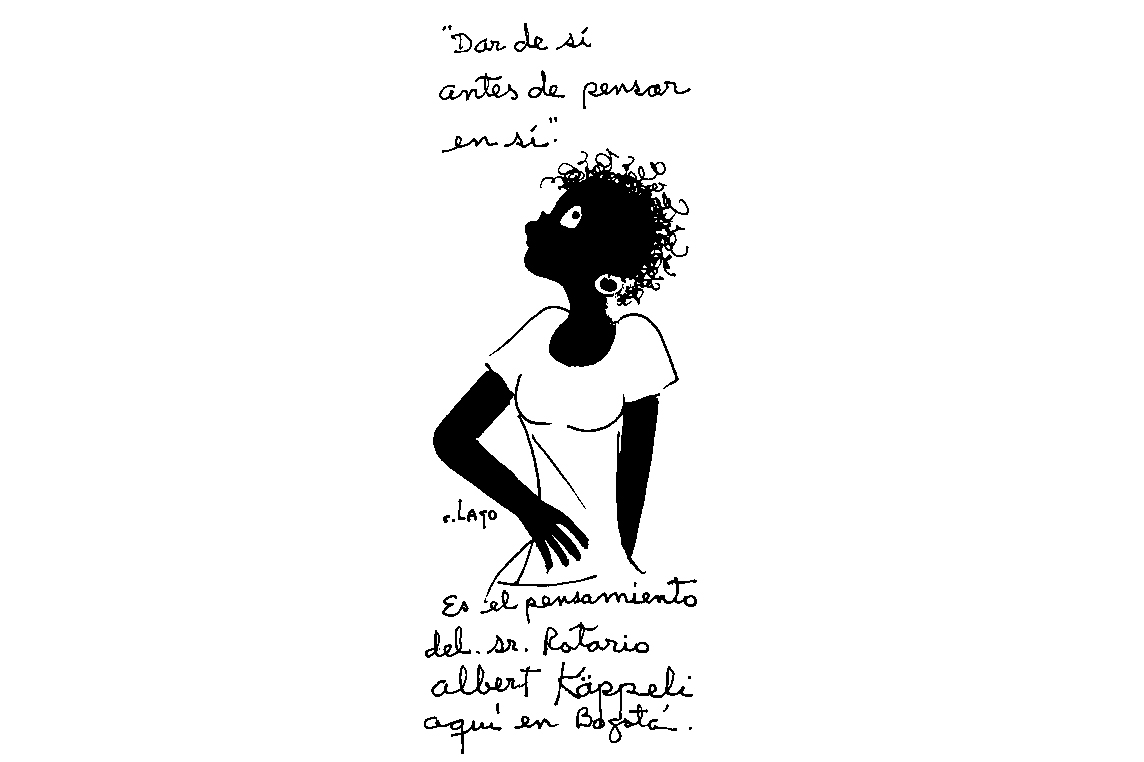 "Dar de sí
antes de pensar
en sí".
r. LAGO
Es el pensamiento
del. sr. Rotario
albert Käppeli
aquí en Bogotá.